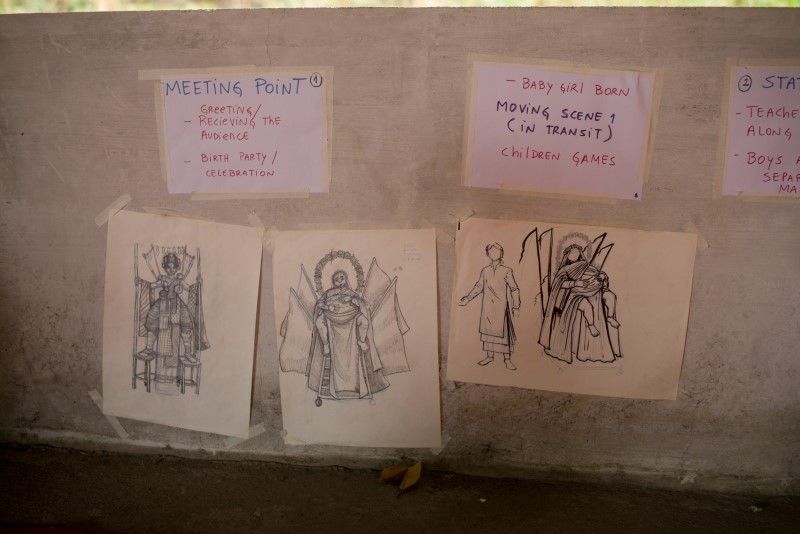 MEETING POINT ①
GREETING/
- RECIEVING THE
AUDIENCE
- BIRTH PARTY /
CELEBRATION
- BABY GIRL BORN
MOVING SCENE 1
(IN TRANSIT)
CHILDREN GAMES
② STAT
- TEACHE
ALONG
- BOYS A
SEPAR
MA